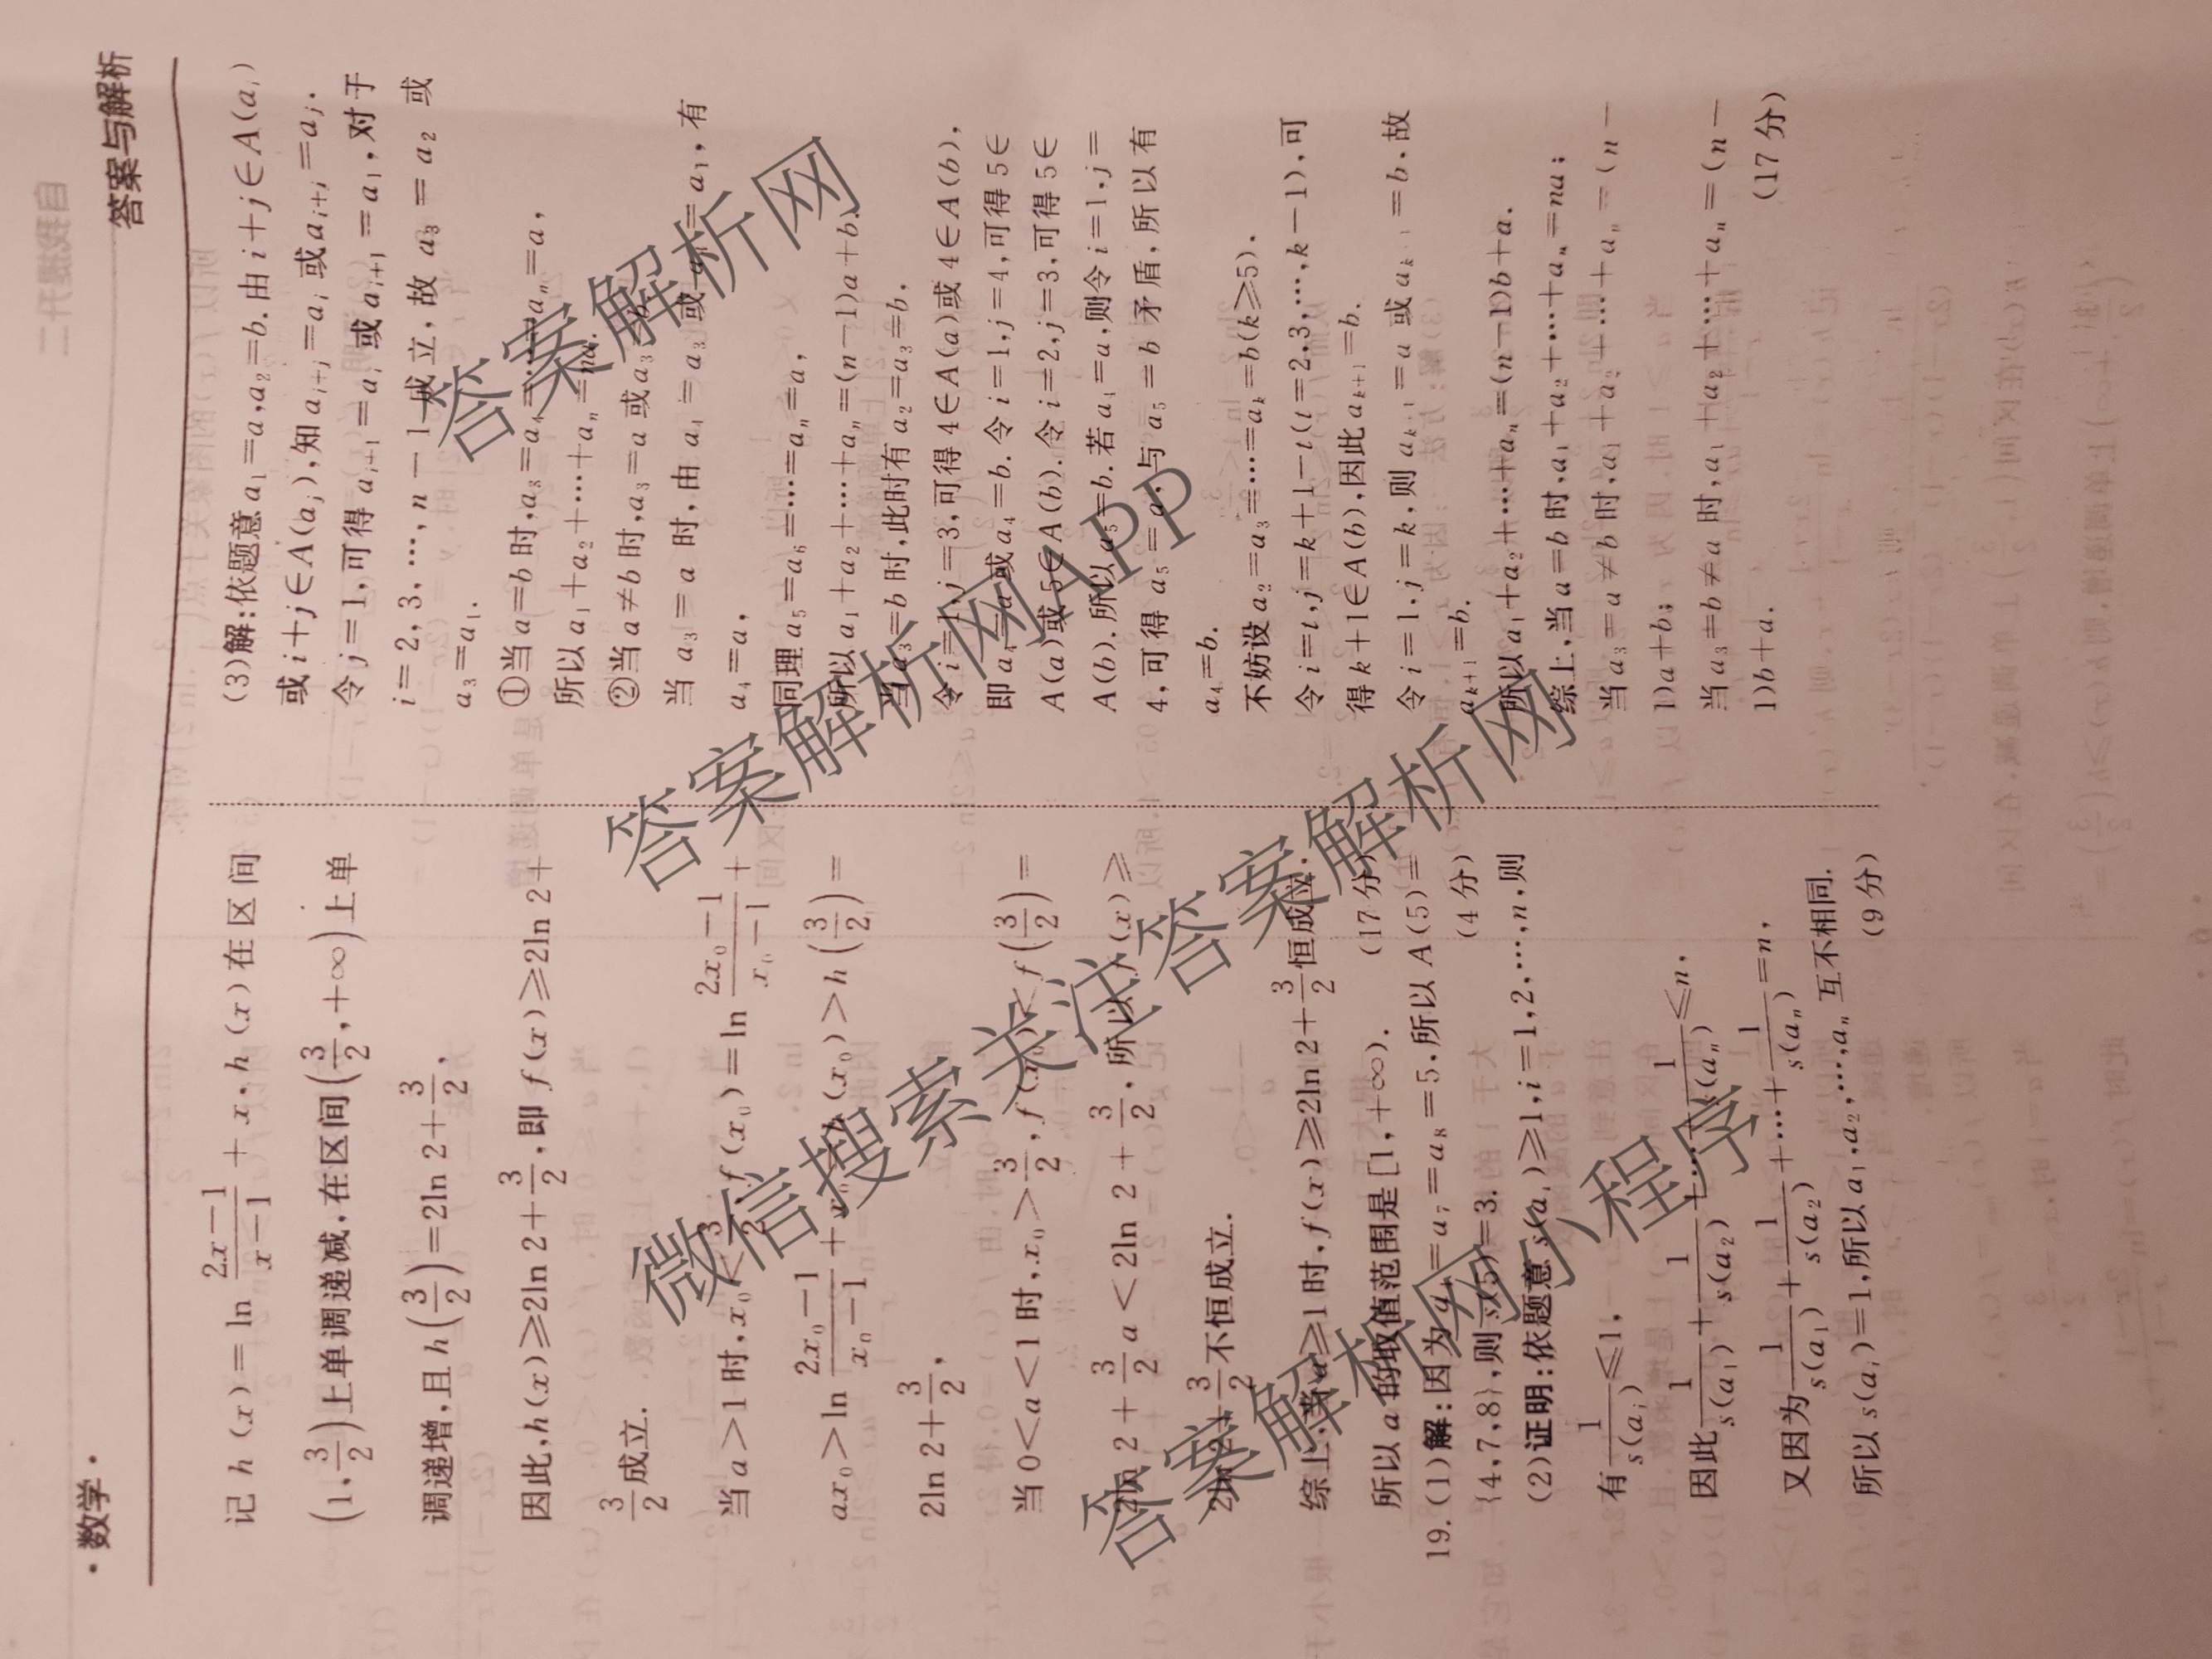 ·数学·
答案与解析
记 h(x)=ln (2x-1)/(x-1) + x, h(x) 在区间
(1, 3/2)上单调递减,在区间(3/2, +∞)上单
调递增,且 h(3/2)=2ln 2+3/2,
因此,h(x)≥2ln 2+3/2,即 f(x)≥2ln 2+
3/2成立.
当 a>1 时,x₀<3/2, f(x₀)=ln (2x₀-1)/(x₀-1) +
ax₀>ln (2x₀-1)/(x₀-1) + x₀=h(x₀)>h(3/2)=
2ln 2+3/2,
当 0<a<1 时,x₀>3/2,f(x₀)<f(3/2)=
2ln 2+3/2 a<2ln 2+3/2,所以 f(x)≥
2ln 2+3/2不恒成立.
综上,当 a≥1 时,f(x)≥2ln 2+3/2恒成立.
所以 a 的取值范围是[1,+∞). (17分)
19.(1)解:因为 a₄=a₇=a₈=5,所以 A(5)=
{4,7,8},则 s(5)=3. (4分)
(2)证明:依题意 s(aᵢ)≥1,i=1,2,…,n,则
有 1/s(aᵢ)≤1,
因此 1/s(a₁)+1/s(a₂)+…+1/s(aₙ)≤n,
又因为 1/s(a₁)+1/s(a₂)+…+1/s(aₙ)=n,
所以 s(aᵢ)=1,所以 a₁,a₂,…,aₙ 互不相同.
(9分)
(3)解:依题意 a₁=a,a₂=b.由 i+j∈A(aᵢ)
或 i+j∈A(aⱼ),知 aᵢ₊ⱼ=aᵢ 或 aᵢ₊ⱼ=aⱼ.
令 j=1,可得 aᵢ₊₁=aᵢ 或 aᵢ₊₁=a₁,对于
i=2,3,…,n-1 成立,故 a₃=a₂ 或
a₃=a₁.
①当 a=b 时,a₃=a₄=…=aₙ=a,
所以 a₁+a₂+…+aₙ=na.
②当 a≠b 时,a₃=a 或 a₃=b.
当 a₃=a 时,由 a₄=a₃ 或 a₄=a₁,有
a₄=a,
同理 a₅=a₆=…=aₙ=a,
所以 a₁+a₂+…+aₙ=(n-1)a+b.
当 a₃=b 时,此时有 a₂=a₃=b.
令 i=1,j=3,可得 4∈A(a)或 4∈A(b),
即 a₄=a 或 a₄=b.令 i=1,j=4,可得 5∈
A(a)或 5∈A(b).令 i=2,j=3,可得 5∈
A(b).所以 a₅=b.若 a₄=a,则令 i=1,j=
4,可得 a₅=a,与 a₅=b 矛盾,所以有
a₄=b.
不妨设 a₂=a₃=…=aₖ=b(k≥5).
令 i=t,j=k+1-t(t=2,3,…,k-1),可
得 k+1∈A(b),因此 aₖ₊₁=b.
令 i=1,j=k,则 aₖ₊₁=a 或 aₖ₊₁=b.故
aₖ₊₁=b.
所以 a₁+a₂+…+aₙ=(n-1)b+a.
综上,当 a=b 时,a₁+a₂+…+aₙ=na;
当 a₃=a≠b 时,a₁+a₂+…+aₙ=(n-
1)a+b;
当 a₃=b≠a 时,a₁+a₂+…+aₙ=(n-
1)b+a. (17分)
答案解析网
答案解析网APP
微信搜索关注答案解析网
答案解析网小程序